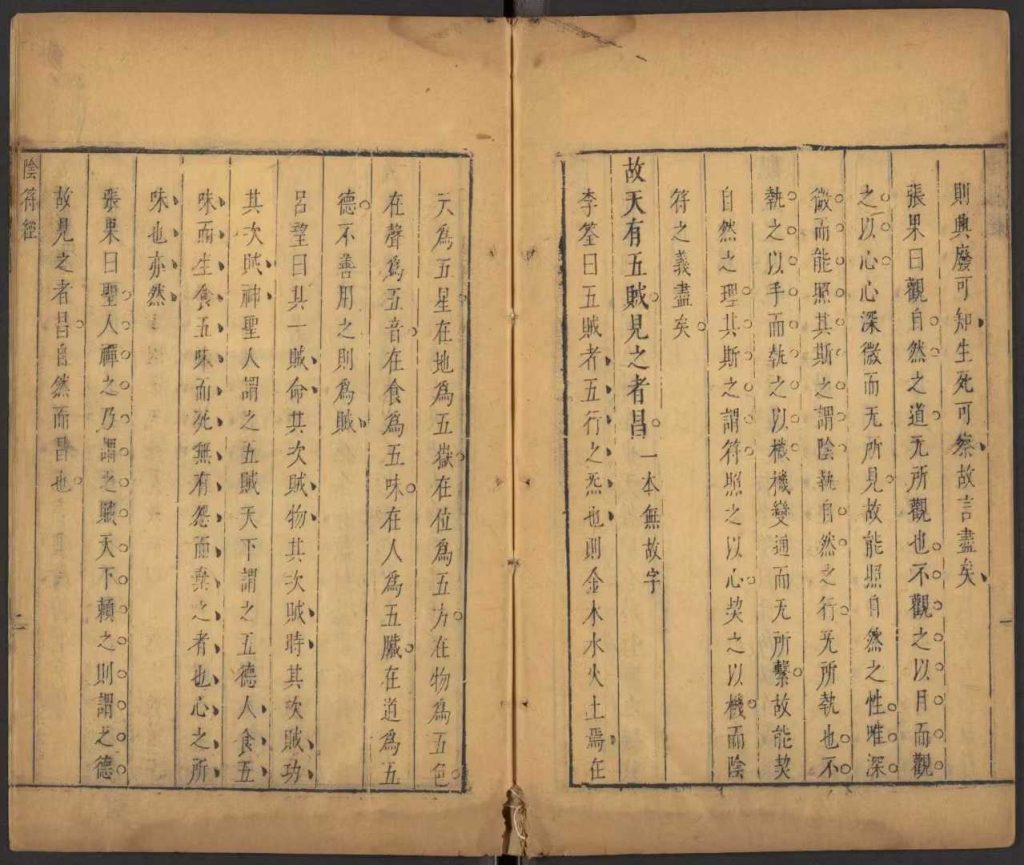 則興廢可知生死可察故言盡矣
張果曰觀自然之道无所觀也不觀之以目而觀
之以心心深微而无所見故能照自然之性唯深
微而能照其斯之謂陰執自然之行无所執也不
執之以手而執之以機機變通而无所繫故能契
自然之理其斯之謂符照之以心契之以機而陰
符之義盡矣
故天有五賊見之者昌一本無故字
李筌曰五賊者五行之炁也則金木水火土焉在
天為五星在地為五嶽在位為五方在物為五色
在聲為五音在食為五味在人為五臟在道為五
德不善用之則為賊
呂望曰其一賊命其次賊物其次賊時其次賊功
其次賊神聖人謂之五賊天下謂之五德人食五
味而生食五味而死無有怨而棄之者也心之所
味也亦然
張果曰聖人禪之乃謂之賊天下賴之則謂之德
故見之者昌自然而昌也
陰符經
二